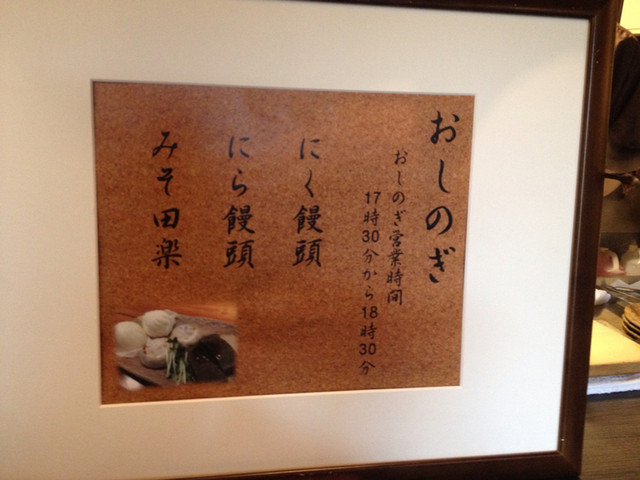 おしのぎ
おしのぎ営業時間
17時30分から18時30分
にく饅頭
にら饅頭
みそ田楽